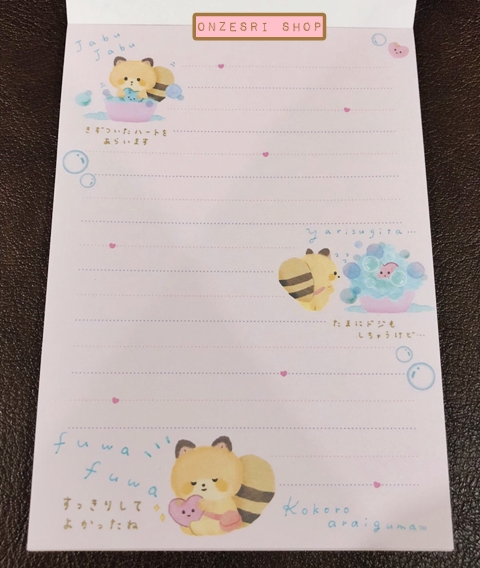 ONZESRI SHOP
Jabu
Jabu
きずついたハートを
あらいます
Yarisugita…
たまにドジも
しちゃうけど…
fuwa
fuwa
すっきりして
よかったね
Kokoro
araiguma